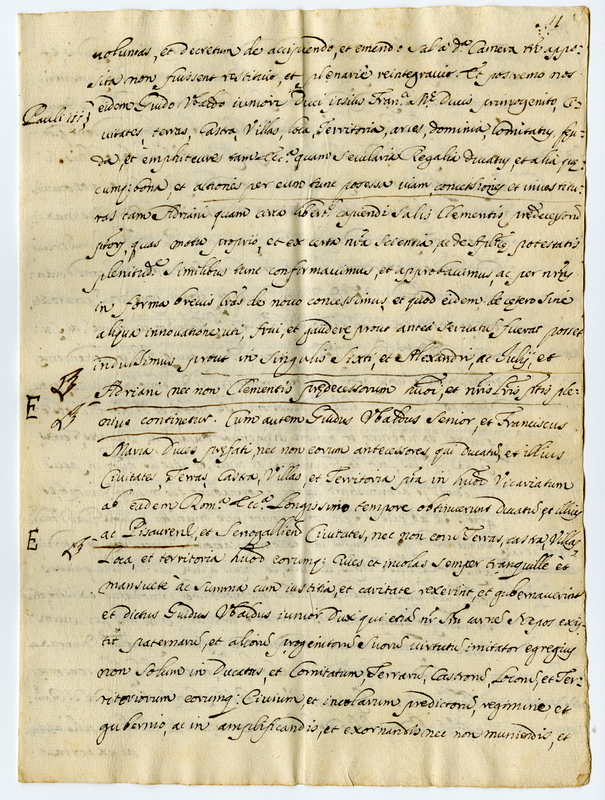 11
voluntas, et decretum de accipiendo, et emendo Sal a d.ᵃ Camera
sita non fuissent restituit, et plenarie reintegravit. Et postremo nos
Pauli iij
eidem Guido Ubaldo iuniori Duci ipsius Fran.ᶜⁱ Mᵉ Ducis primogenito, Ci-
vitates, terras, Castra, Villas, loca, Territoria, arces, dominia, Comitatus, feu-
da, et emphiteuses tam Ecc.ᶜᵃ quam Secularia Regalia ducatus, et alia que-
cumq; bona, et actiones per eum tunc possessa
ras tam Adriani quam circa libert.ᵉ capiendi Salis Clementis
quas motu proprio, et ex certa nr̃a Scientia ac de Aplicę potestatis
plenitud.ᵉ Similibus tunc confirmavimus, et approbavimus ac per nr̃as
in forma brevis lr̃as de novo concessimus, et quod eidem de cetero sine
aliqua innovatione uti, frui, et gaudere prout antea servatum fuerat posset
indulsimus, prout in singulis Sixti, et Alexandri, ac Julij, et
Adriani nec non Clementis prędecessorum huiõi, et nr̃is lr̃is, ple-
E
nius continetur. Cum autem Guidus Ubaldus Senior, et Franciscus
Maria Duces pręfati, nec non eorum antecessores, qui ducatũ, et illius
Civitates, Terras, Castra, Villas, et Territoria in Vicariatum
ab eidem Rom.ᵃ Ecc.ᵃ Longissimo tempore obtinuerunt ducatũ, et illius,
E
ac Pisaurenẽ, et Senogallieñ Civitates, nec non eorũ Terras, castra, Villas,
Loca, et territoria huiõi eorumq; Cives et incolas semper tranquille et
mansuete ac summa cum iustitia, et caritate rexerint, et gubernaverint
et dictus Guidus Ubaldus iunior Dux qui etiã Nepos exis-
tit paternarũ, et aliorũ progenitorũ suorũ virtutũ imitator egregius
non solum in Ducatus, et Comitatum, Terrarũ, Castrorũ, Locorũ, et Ter-
ritoriorum eorumq; Civium, et incolarum predictorũ, regimine et
gubernio, ac in amplificandis, et exornandis nec non muniendis, et